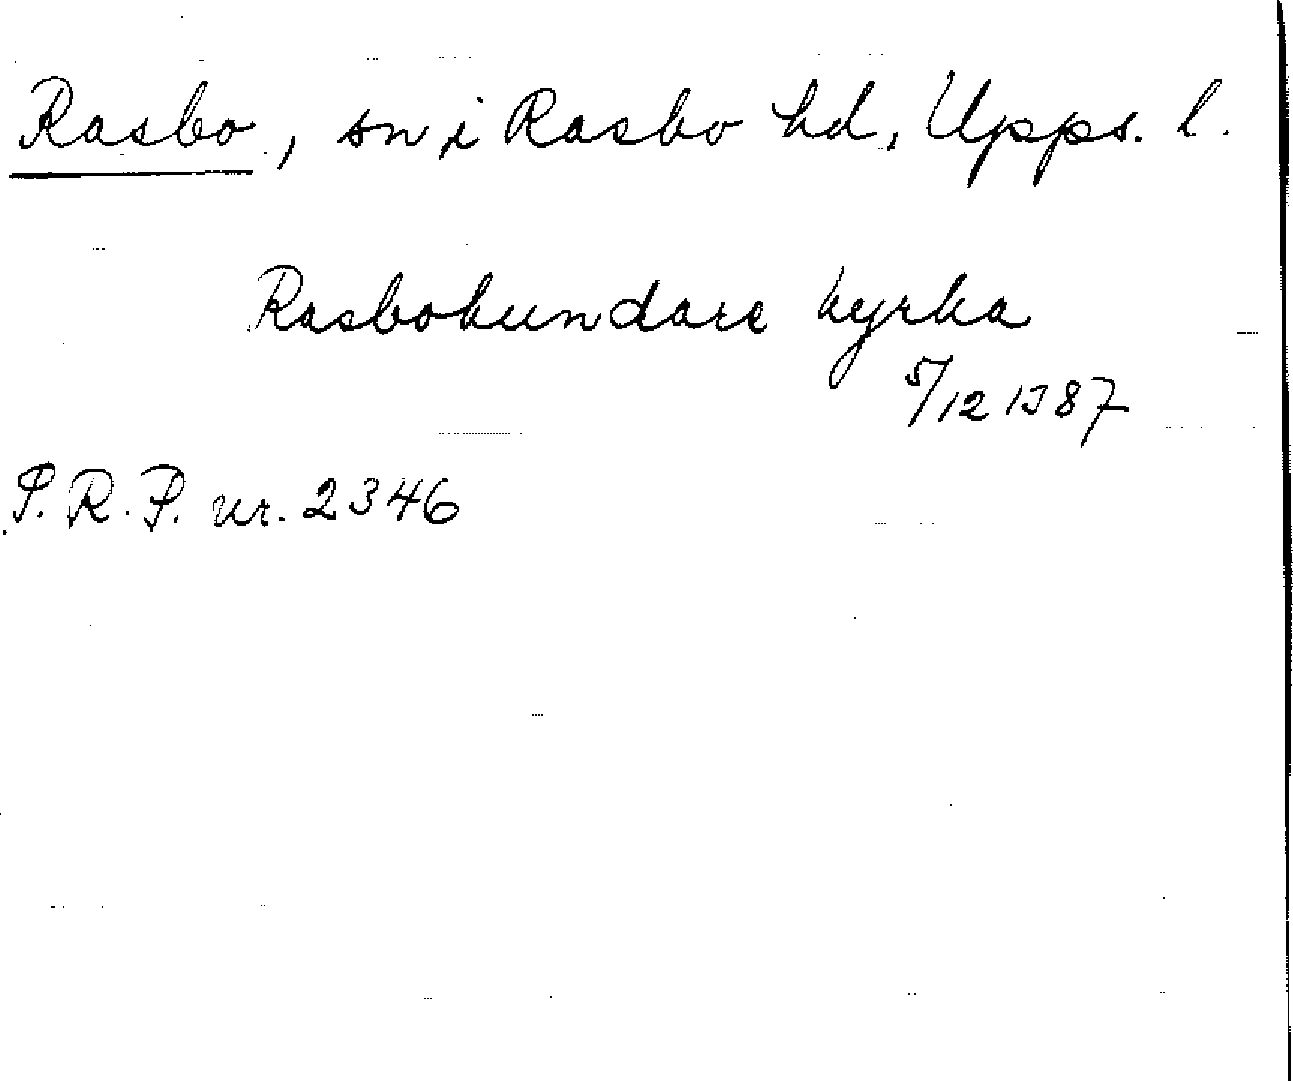 Rasbo, sn i Rasbo hd, Upps. l.
Rasbohundare kyrka
5/12 1387
S.R.P. nr. 2346